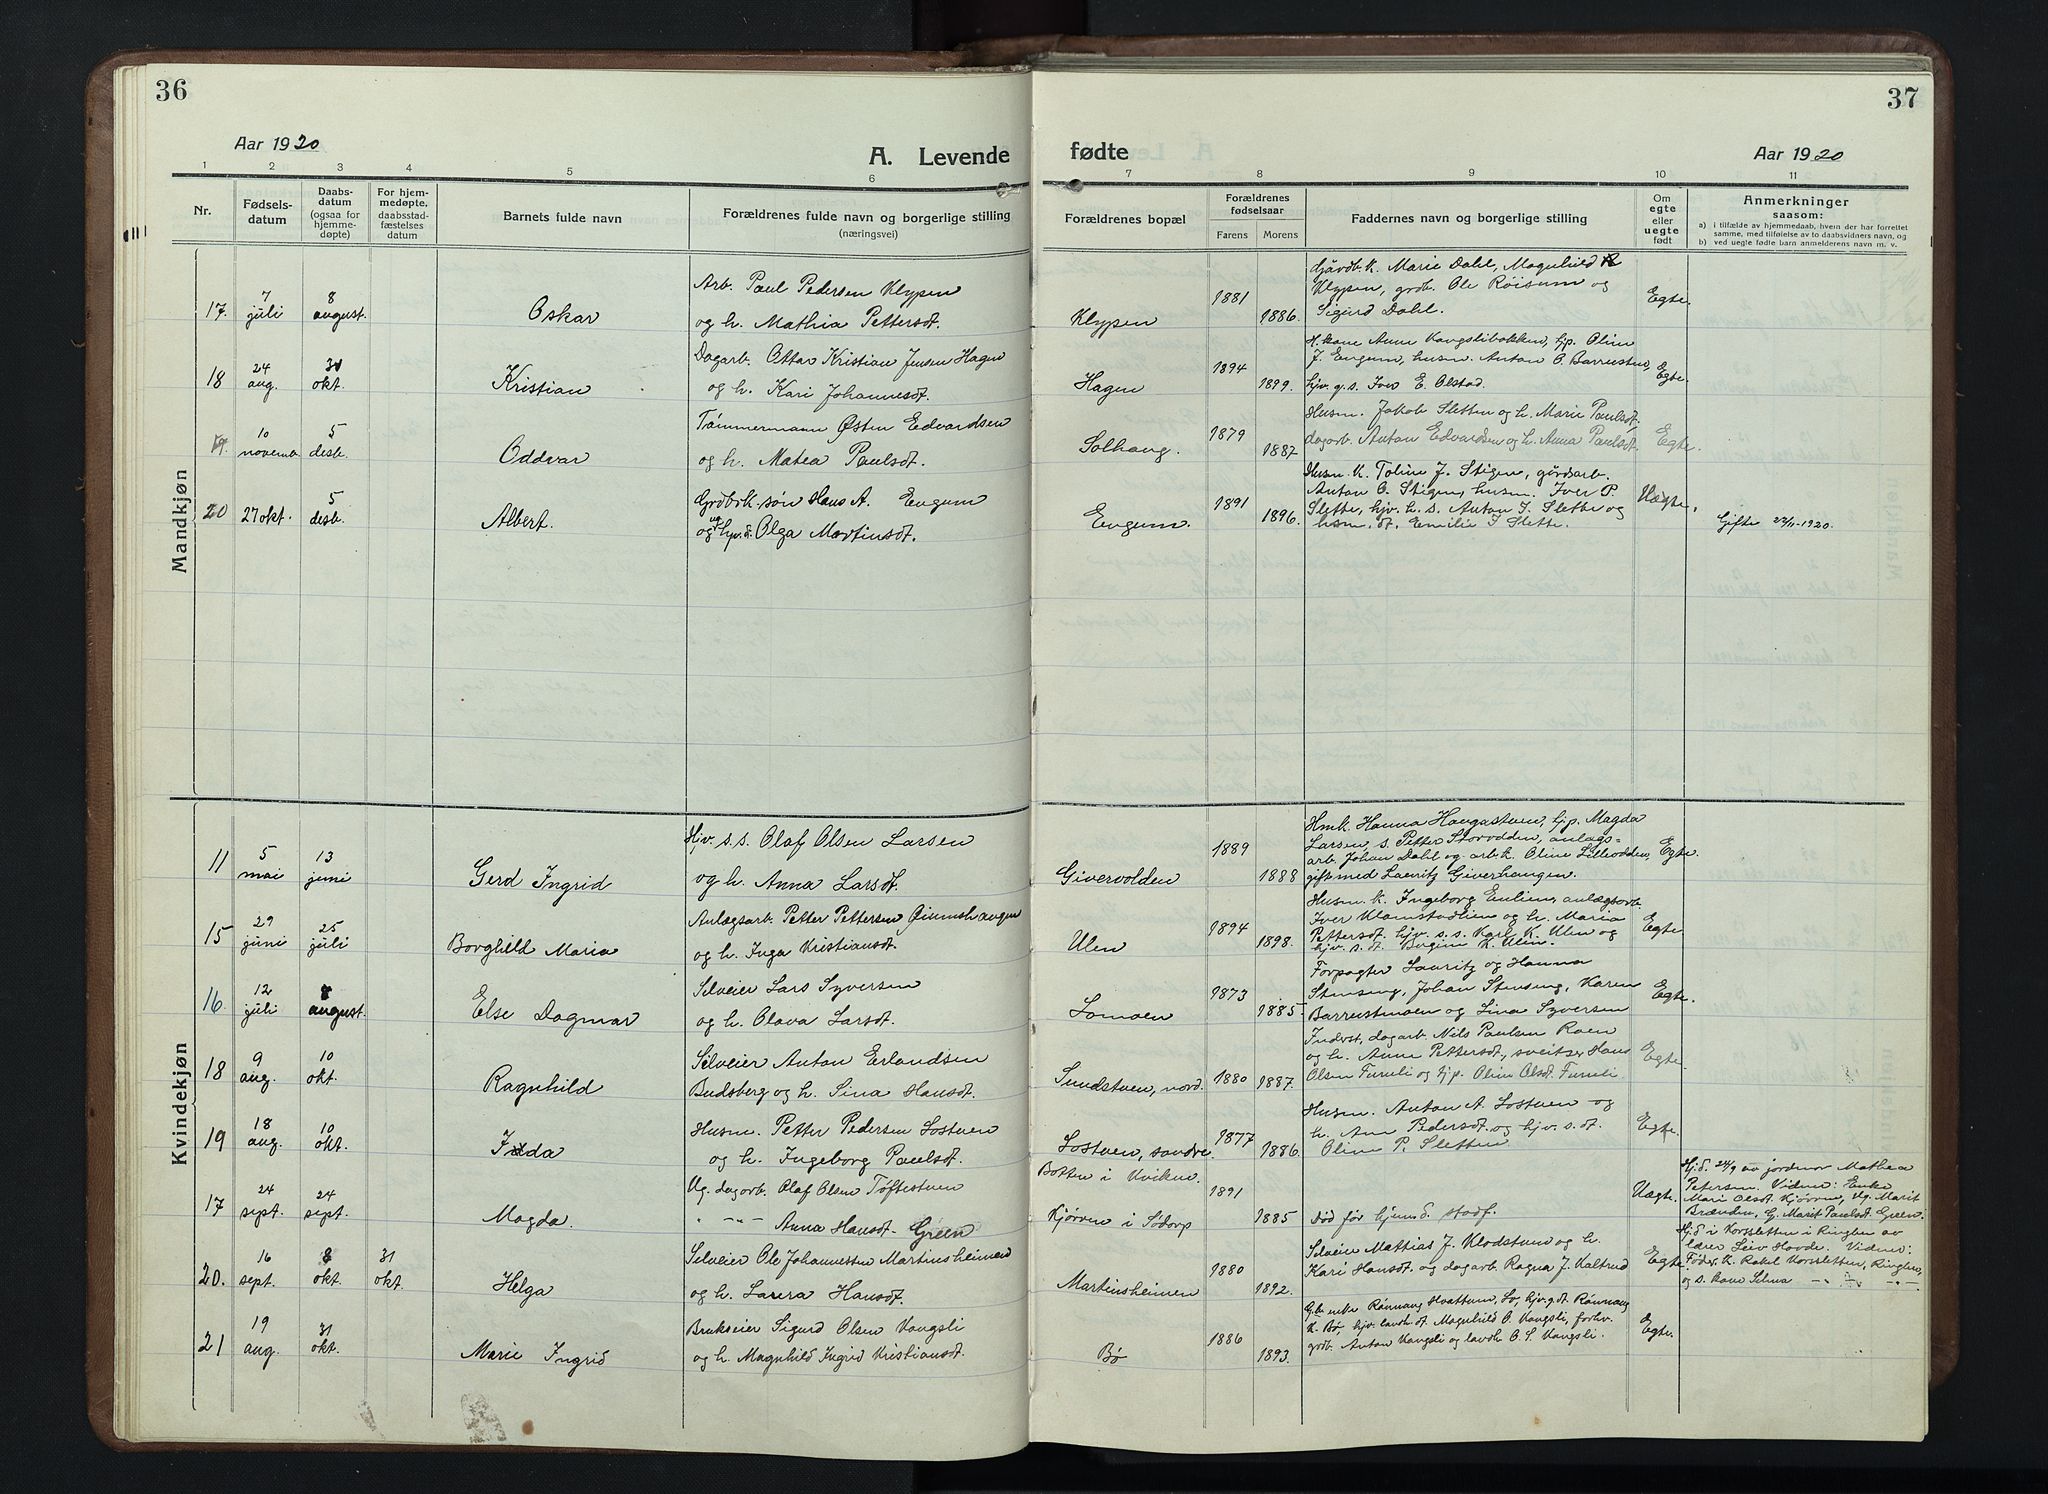 36
Aar 1920
A. Levende
1 2 3 4 5 6
Nr.
Fødsels-
datum
Daabs-
datum
(ogsaa for
hjemme-
døpte)
For hjem-
medøpte,
daabsstad-
fæstelses
datum
Barnets fulde navn
Forældrenes fulde navn og borgerlige stilling
(næringsvei)
Mandkjøn
17. 7 juli 8 august. Oskar
Arb. Paul Pedersen Klypen
og h. Mathia Pettersdt.
18 24 aug. 31 okt. Kristian
Dagarb. Ottar Kristian Jensen Hagen
og h. Kari Johannesdt.
19. 10 novemb. 5 desb. Oddvar
Tømmermann Østen Edvardsen
og h. Matea Paulsdt.
20 27 okt. 5 desb. Albert.
Grdbrk. søn Hans A. Engum
og ug. hjv. d. Olga Martinsdt.
Kvindekjøn
11 5 mai 13 juni Gerd Ingrid
Hjv. s.s. Olaf Olsen Larsen
og h. Anna Larsdt.
15 29 juni 25 juli Borghild Maria
Anlægsarb. Petter Pettersen Øiumshaugen
og h. Inga Kristiansdt.
16. 12 juli 8 august. Else Dagmar
Selveier Lars Syversen
og h. Olava Larsdt.
18 9 aug. 10 okt. Ragnhild
Selveier Anton Erlandsen
Budsberg og h. Sina Hansdt.
19 18 aug. 10 okt. Ida
Husm. Petter Pedersen Lostuen
og h. Ingeborg Paulsdt.
17 24 sept. 24 sept. Magda.
Ug. dagarb. Olaf Olsen Tøftestuen
" -"- Anna Hansdt. Green
20. 16 sept. 8 okt. 31 okt. Helga
Selveier Ole Johannessen Martinsheimen
og h. Laura Hansdt.
21 19 aug. 31 okt. Marie Ingrid
Brukseier Sigurd Olsen Vangsli
og h. Magnhild Ingrid Kristiansdt.
37
fødte
Aar 1920
7 8 9 10 11
Forældrenes bopæl
Forældrenes
fødselsaar
Farens Morens
Faddernes navn og borgerlige stilling
Om
egte
eller
uegte
født
Anmerkninger
saasom:
a) i tilfælde av hjemmedaab, hvem der har forrettet
samme, med tilføielse av to daabsvidners navn, og
b) ved uegte fødte barn anmelderens navn m. v.
Klypen 1881 1886.
Gårdb. k. Marie Dahl, Magnhild
Klypen, grdb. Ole Røisum og
Sigurd Dahl.
Egte.
Hagen 1894 1899.
Anne Vangslibakken, hjp. Oline
J. Engum, husm. Anton O. Barrusten,
hjv. g.s. Iver E. Olstad.
Egte.
Solhaug. 1879 1887
Husm. Jakob Sletten og h. Marie Paulsdt,
dagarb. Anton Edvardsen og h. Anna Paulsdt.
Egte.
Engum. 1891 1896.
Husm. k. Toline J. Stigen, gårdsarb.
Anton O. Stigen, husm. Iver P.
Slette, hjv. h. s. Anton I. Slette og
husm. dt. Emilie I. Slette.
Uægte.
Gifte 22/11-1920.
Givervolden 1889 1888
Hmk. Hanna Haugastuen, hjp. Magda
Larsen, s. Petter Storodden, anlægs=
arb. Johan Dahl og arb. k. Oline Lilleodden,
gift med Lauritz Giverhaugen.
Egte.
Ulen 1894 1898.
Husm. k. Ingeborg Enlien, anlægsarb.
Iver Klomstadlien og h. Maria
Pettersdt. hjv. s.s. Karl K. Ulen og
hjv. s. dt. K. Ulen.
Egte
Lomoen 1873 1885
Forpagter Lauritz og Hanna
Stenseng, Johan Stenseng, Karen
Barrustmoen og Lina Syversen
Egte.
Sundstuen, nord. 1880 1887.
Inderst, dagarb. Nils Paulsen Roen
og h. Anne Pettersdt, sveitser Hans
Olsen Furuli og hjp. Oline Olsdt. Furuli
Egte.
Lostuen, søndre. 1877 1886.
Husm. Anton A. Lostuen og
h. Ane Pedersdt. og hjv. s. dt.
Oline P. Sletten
Egte.
Botten i Kvikne.
Kjørren i Sødorp 1891 1885
Død før hjemd. stadf.
Uægte.
Hj. d. 24/9 av jordmor Mathea
Petersen. Vidner: Enke
Mari Olsdt. Kjørren, Ug. Marit
Brænden, G. Marit Paulsdt. Green.
Martinsheimen 1880 1892.
Selveier Mathias J. Klodstuen og h.
Kari Hansdt. og dagarb. Ragna J. Kaltrud
Egte
Hj. d. i Korsletten i Ringebu av
lærer Leiv Hovde. Vidner:
Føder. k. Rakel Korsletten, Ringebu,
og s. kone Selma -"- -"-
Bø 1886 1893.
Rønnaug Hvattum, Lo, hjv. g. dt. Rønnaug
K. Bø, hjv. lavh. dt. Magnhild O. Vangsli, forhv.
grdb. Anton Vangsli og lavh. O. S. Vangsli.
Egte.